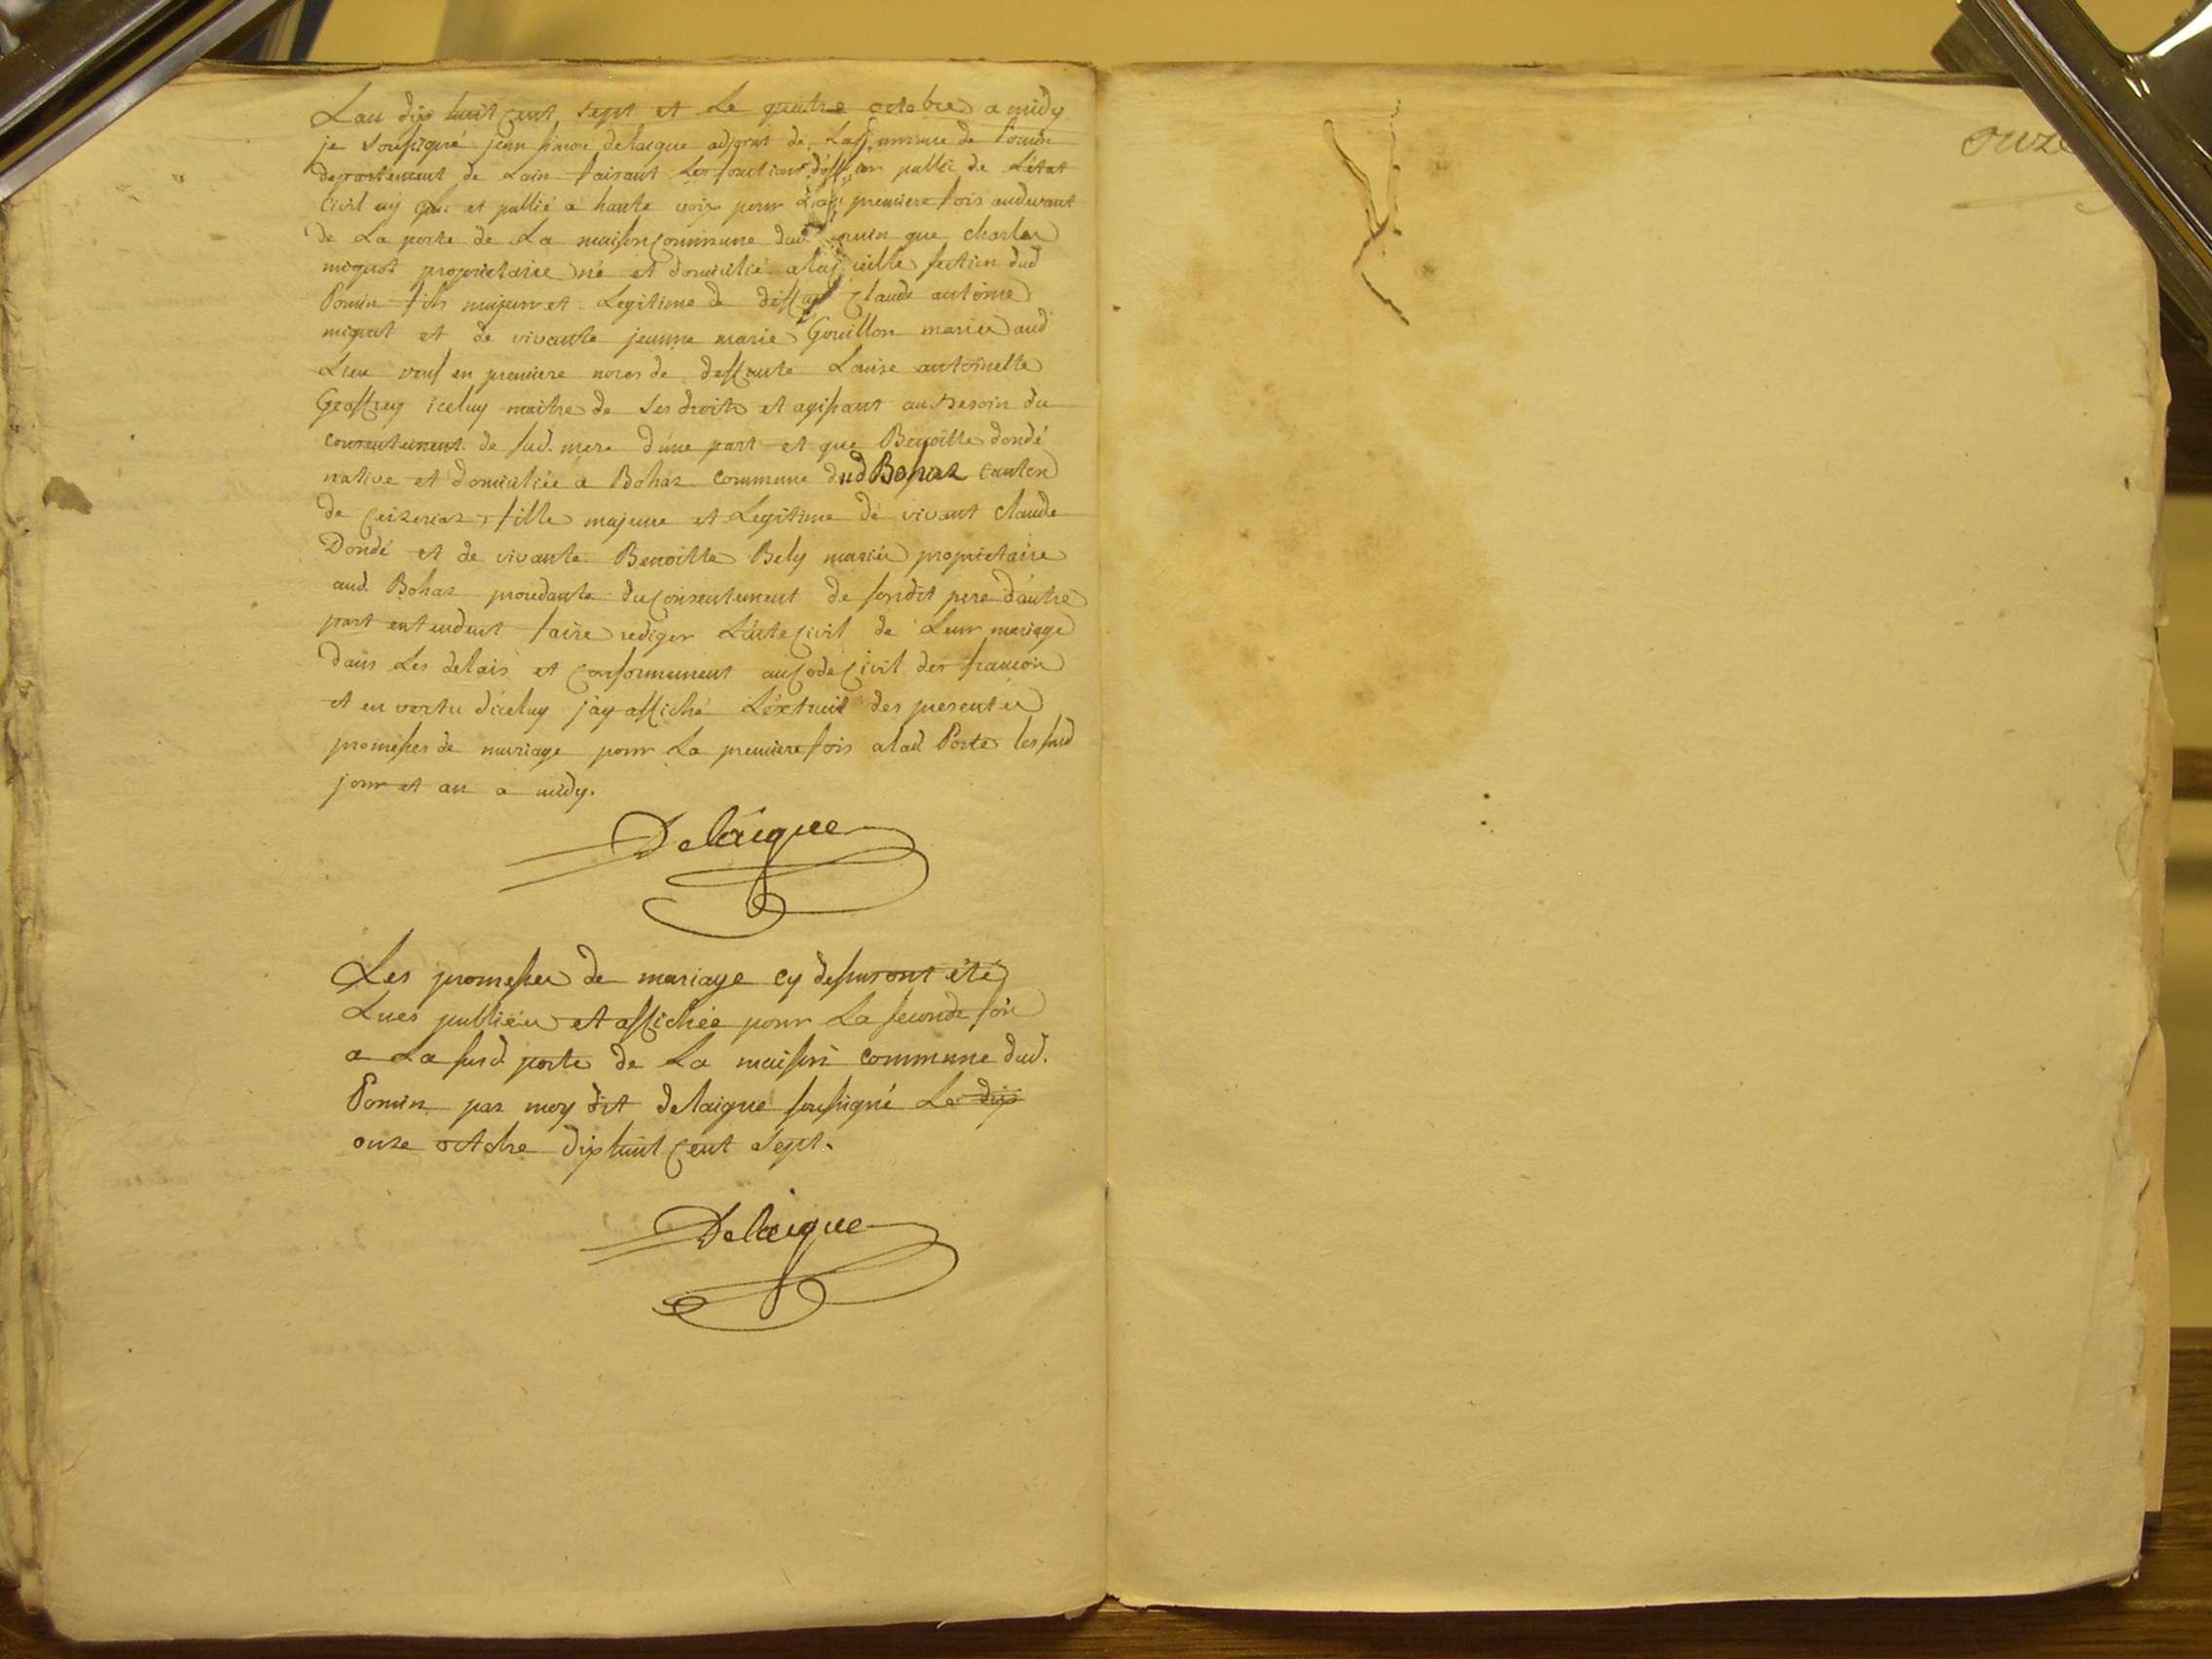 Lan dix huit cent sept et le quatre octobre a midy
je soussigné jean simon delaigue adjoint de La commune de Pomin
departement de Lain faisant Les fonctions d'officier public de L'état
Civil ay lu et publié a haute voix pour La premiere fois audevant
de La porte de La maison commune dud pomin que charles
miquet proprietaire né et domicilié section dud
Pomin fils majeur et Legitime de deffunt Claude antoine
miquet et de vivante jeanne marie Gouillon mariés aud
Lieu veuf en premiere noces de deffunte Louise antoinette
Geoffrey iceluy maitre de ses droits et agissant au Besoin du
consentement de sad. mere d'une part et que Benoitte dondé
native et domiciliée a Bohas commune dud Bohas canton
de Ceizerias, fille majeure et Legitime de vivant claude
Dondé et de vivante Benoitte Bely mariés proprietaire
aud. Bohas procedante du consentement de sondit pere d'autre
part entendent faire rediger L'acte civil de Leur mariage
dans Les delais et conformement au Code Civil des francois
et en vertu d'iceluy j'ay affiché L'extrait des presentes
promesses de mariage pour La premiere fois alad. Porte les sud
jour et an a midy.
Delaigue
Les promesses de mariage cy dessus ont été
Lues publiées et affichées pour La seconde fois
a La susd. porte de La maison commune dud.
Pomin par moy dit delaigue soussigné Le dix
onze octobre dix huit cent sept.
Delaigue
onze